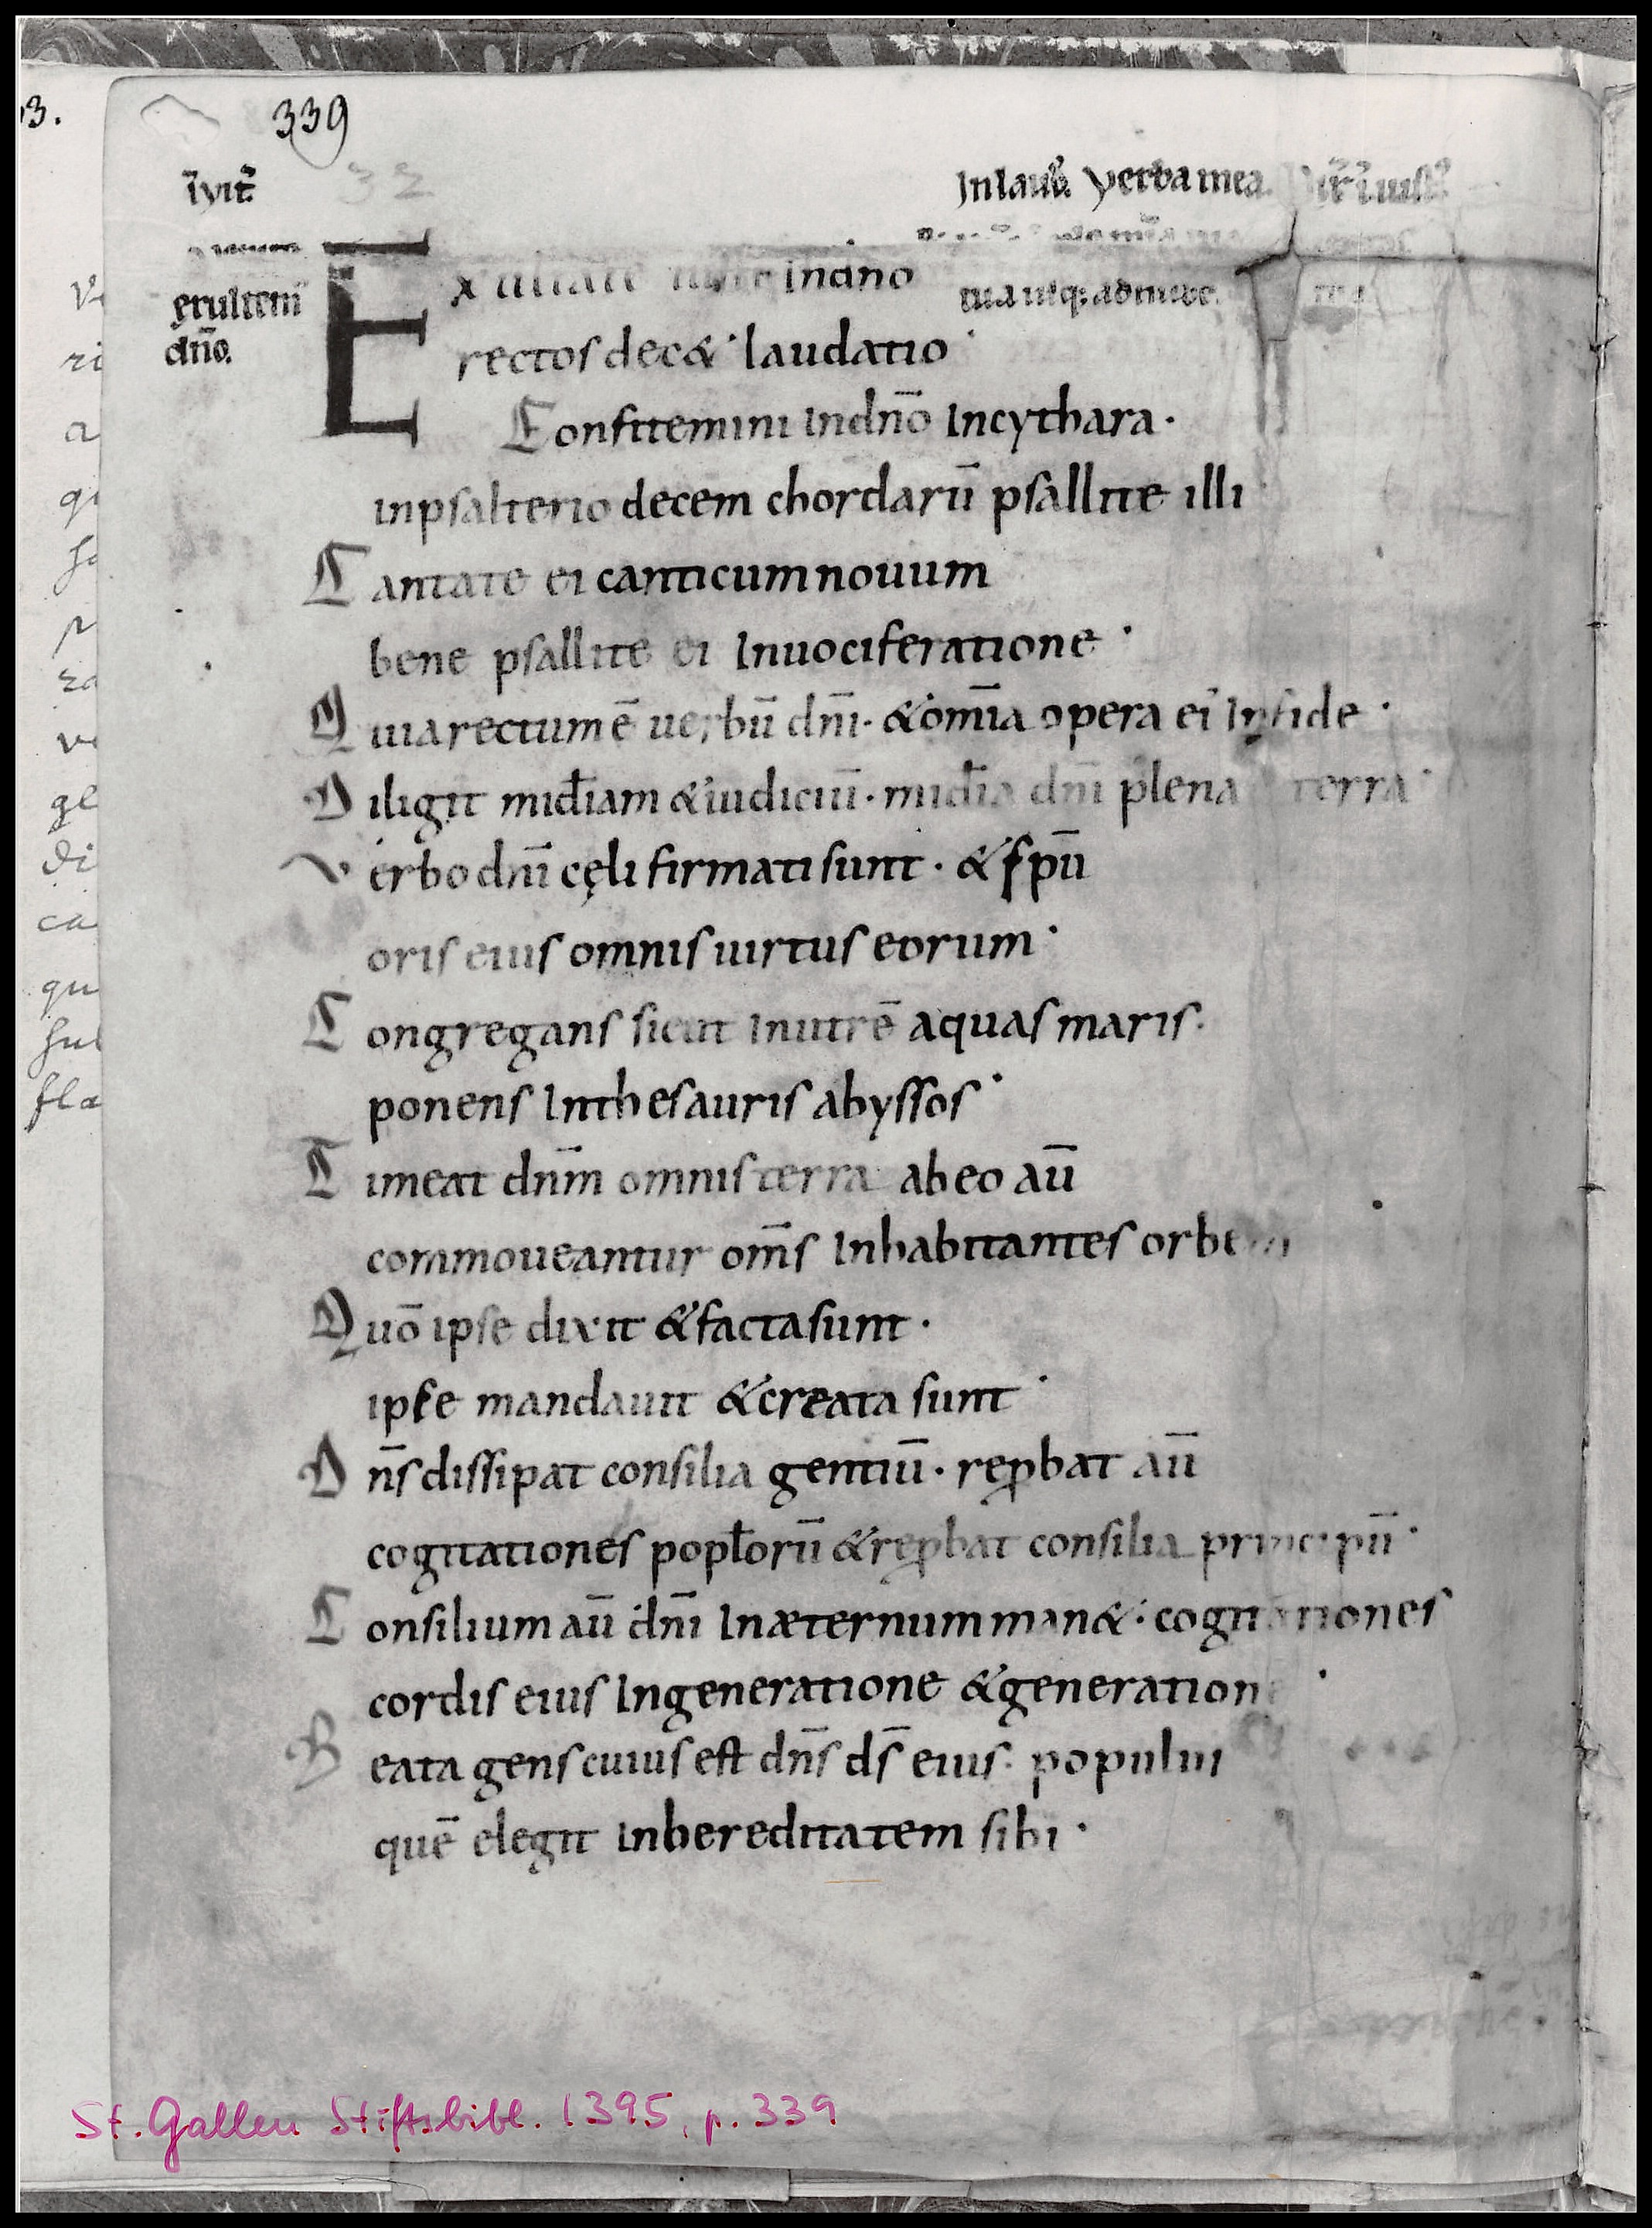 339
32
Inlaud. Verba mea.
exultem
dn̄o.
Exultate iusti Indn̄o
rectos dec& laudatio·
Confitemini Indn̄o Incythara·
inpsalterio decem chordarū psallite illi
Cantate ei canticumnouum
bene psallite ei Inuociferatione·
Quiarectumē uerbū dn̄i· &om̄ia opera ei' Infide·
Diligit mid̄iam &iudiciū· mid̄ia dn̄i plena terra·
Verbodn̄i cęli firmatisunt· &sp̄u
oris eius omnisuirtus eorum·
Congregans sicut Inutrē aquasmaris·
ponens Inthesauris abyssos·
Timeat dn̄m omnisterra abeo aū
commoueantur om̄s Inhabitantes orbem
Quō ipse dixit &factasunt·
ipse mandauit &creata sunt·
Dn̄s dissipat consilia gentiū· rep̱bat aū
cogitationes popl̄orū &rep̱bat consilia principū·
Consilium aū dn̄i Inæternumman&· cogitationes
cordis eius Ingeneratione &generatione·
Beata gens cuius est dn̄s ds̄ eius· populus
quē elegit Inhereditatem sibi·
St. Gallen Stiftsbibl. 1395, p. 339